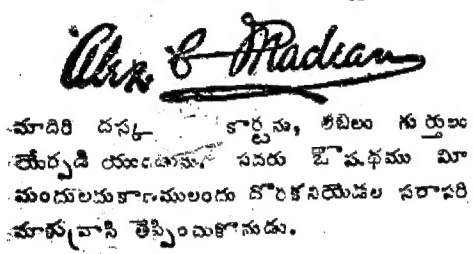 Alex C Maclean
మాదిరి దస్క కార్టును, లేబిలు గుర్తులు
యేర్పడి యుండును. సదరు ఔషథము మీ
మందులదుకాణములందు దొరకనియెడల సరాసరి
మాకు వ్రాసి తెప్పించుకొనుడు.